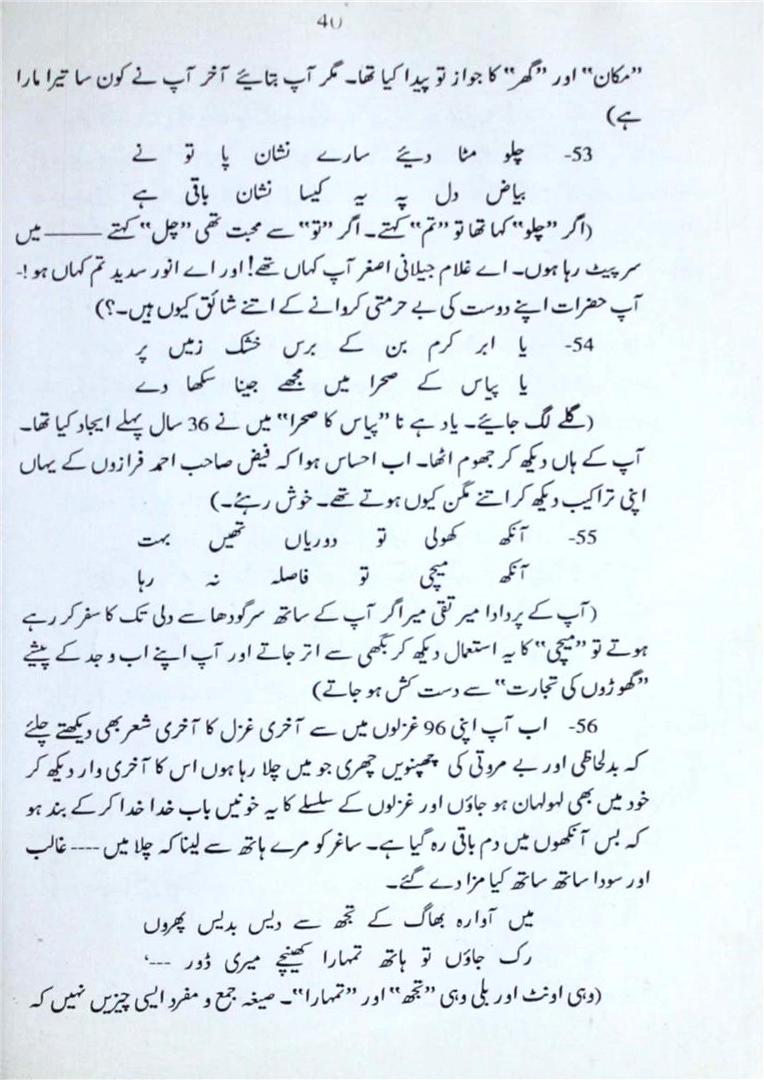 40
”مکان“ اور ”گھر“ کا جواز تو پیدا کیا تھا۔ مگر آپ بتائیے آخر آپ نے کون سا تیرا مارا
ہے)
53- چلو مٹا دیئے سارے نشان پا تو نے
بیاض دل پہ یہ کیسا نشان باقی ہے
(اگر ”چلو“ کہا تھا تو ”تم“ کہتے۔ اگر ”تو“ سے محبت تھی ”چل“ کہتے ——— میں
سر پیٹ رہا ہوں۔ اے غلام جیلانی اصغر آپ کہاں تھے! اور اے انور سدید تم کہاں ہو!-
آپ حضرات اپنے دوست کی بے حرمتی کروانے کے اتنے شائق کیوں ہیں۔؟)
54- یا ابر کرم بن کے برس خشک زمیں پر
یا پیاس کے صحرا میں مجھے جینا سکھا دے
(گلے لگ جائیے۔ یاد ہے نا ”پیاس کا صحرا“ میں نے 36 سال پہلے ایجاد کیا تھا۔
آپ کے ہاں دیکھ کر جھوم اٹھا۔ اب احساس ہوا کہ فیض صاحب احمد فرازوں کے یہاں
اپنی تراکیب دیکھ کر اتنے مگن کیوں ہوتے تھے۔ خوش رہئے۔)
55- آنکھ کھولی تو دوریاں تھیں بہت
آنکھ میچی تو فاصلہ نہ رہا
(آپ کے پردادا میر تقی میر اگر آپ کے ساتھ سرگودھا سے دلی تک کا سفر کر رہے
ہوتے تو ”میچی“ کا یہ استعمال دیکھ کر بگھی سے اتر جاتے اور آپ اپنے اب و جد کے پیشے
”گھوڑوں کی تجارت“ سے دست کش ہو جاتے)
56- اب آپ اپنی 96 غزلوں میں سے آخری غزل کا آخری شعر بھی دیکھتے چلئے
کہ بدلحاظی اور بے مروتی کی چھپنویں چھری جو میں چلا رہا ہوں اس کا آخری وار دیکھ کر
خود میں بھی لہولہان ہو جاؤں اور غزلوں کے سلسلے کا یہ خونیں باب خدا خدا کر کے بند ہو
کہ بس آنکھوں میں دم باقی رہ گیا ہے۔ ساغر کو مرے ہاتھ سے لینا کہ چلا میں ---- غالب
اور سودا ساتھ ساتھ کیا مزا دے گئے۔
میں آوارہ بھاگ کے تجھ سے دیس بدیس پھروں
رک جاؤں تو ہاتھ تمہارا کھینچے میری ڈور ---،
(وہی اونٹ اور بلی وہی ”تجھ“ اور ”تمہارا“۔ صیغہ جمع و مفرد ایسی چیزیں نہیں کہ